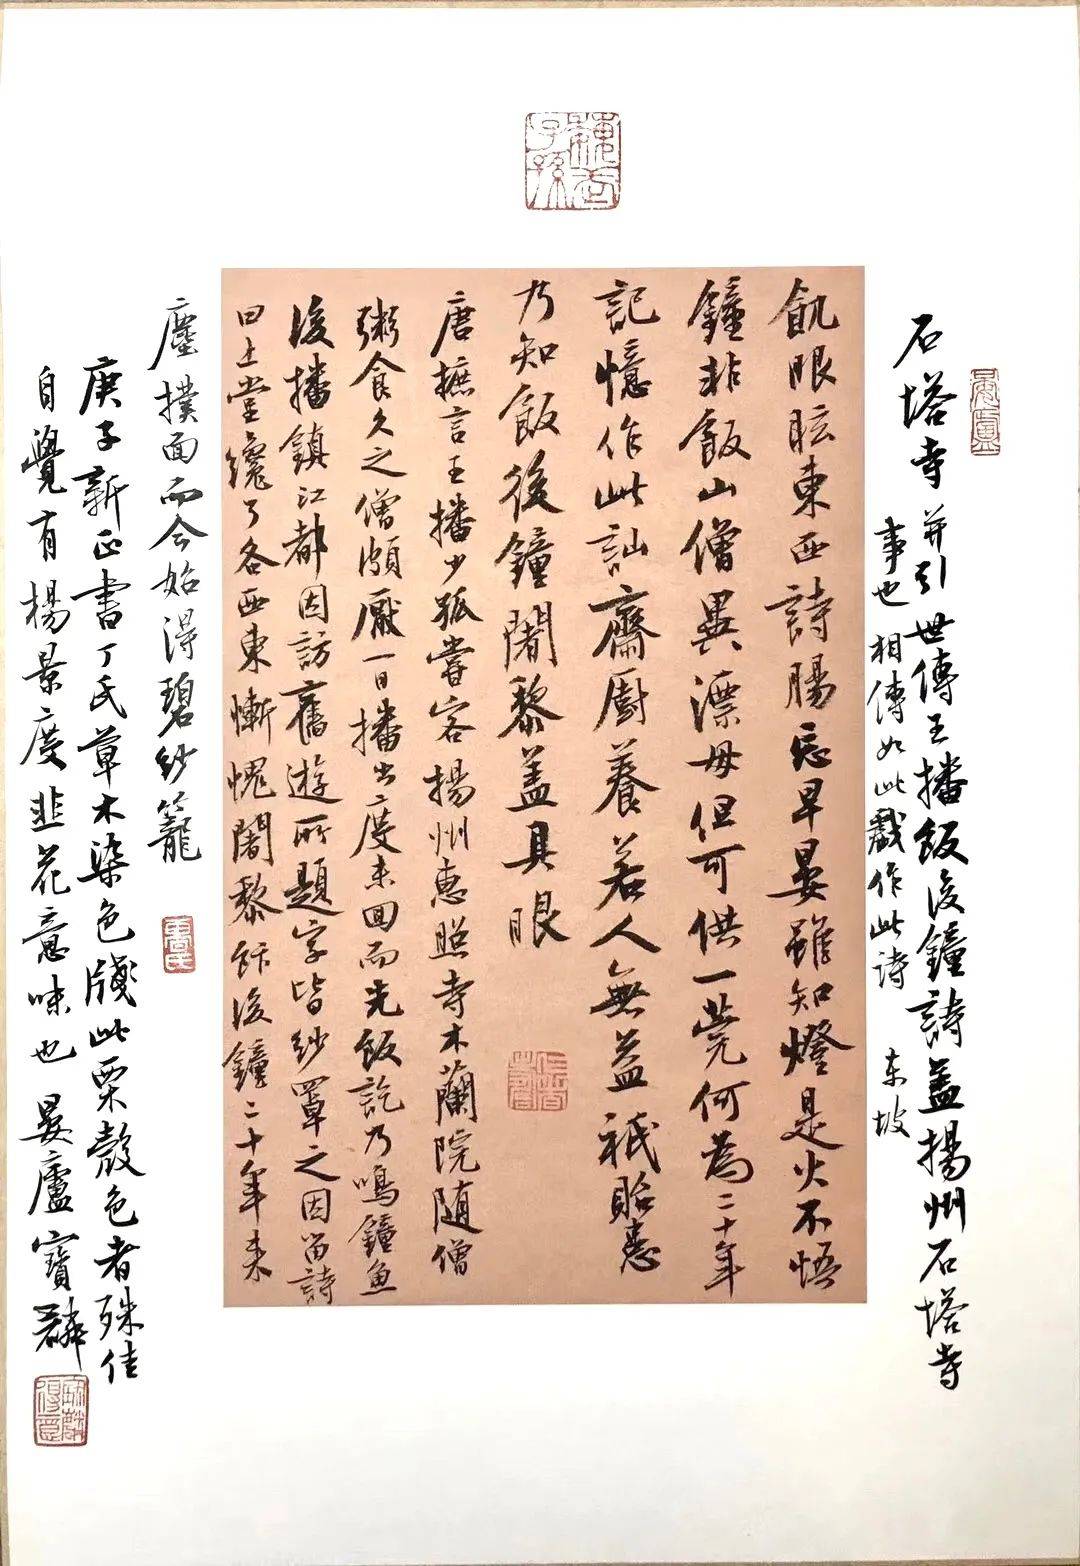 石塔寺 并引 世傳王播飯後鐘詩盖揚州石塔寺
事也 相傳如此戲作此詩 东坡
飢眼眩東西詩腸忘早晏雖知燈是火不悟
鐘非飯山僧異漂母但可供一莞何為二十年
記憶作此訕齋厨養若人無益祇貽患
乃知飯後鐘闍黎盖具眼
唐摭言王播少孤嘗客揚州惠照寺木蘭院随僧
粥食久之僧頗厭一日播出度未回而先飯訖乃鳴鐘魚
後播鎮江都因訪舊遊所題字皆紗罩之因留詩
曰上堂纔了各西東慚愧闍黎飯後鐘二十年来
塵撲面而今始得碧紗籠
庚子新正書丁氏草木染色牋此栗殼色者殊佳
自覺有楊景度韭花意味也 晏廬寶麟